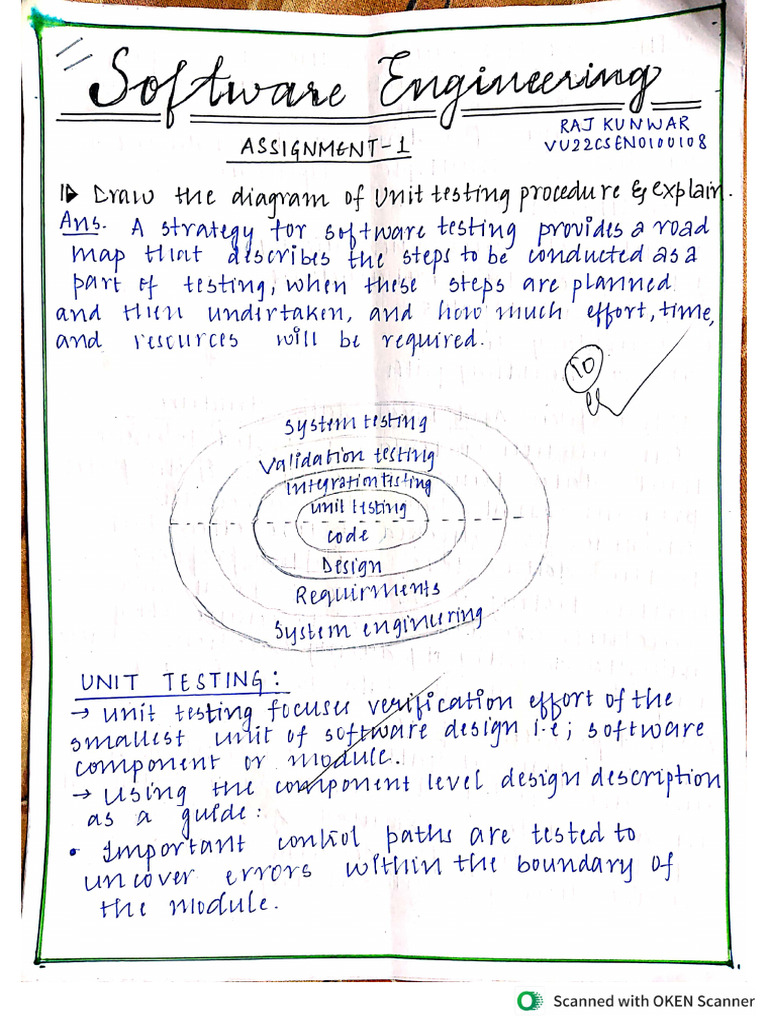 Software Engineering
RAJ KUNWAR
VU22CSEN0100108
ASSIGNMENT-1
1) Draw the diagram of Unit testing procedure & explain.
Ans. A strategy for software testing provides a road
map that describes the steps to be conducted as a
part of testing, when these steps are planned
and then undertaken, and how much effort, time,
and resources will be required.
10
System testing
Validation testing
Integration testing
unit testing
code
Design
Requirments
System engineering
UNIT TESTING:
→ unit testing focuses verification effort of the
smallest unit of software design i.e; software
component or module.
→ Using the component level design description
as a guide:
• Important control paths are tested to
uncover errors within the boundary of
the module.
Scanned with OKEN Scanner